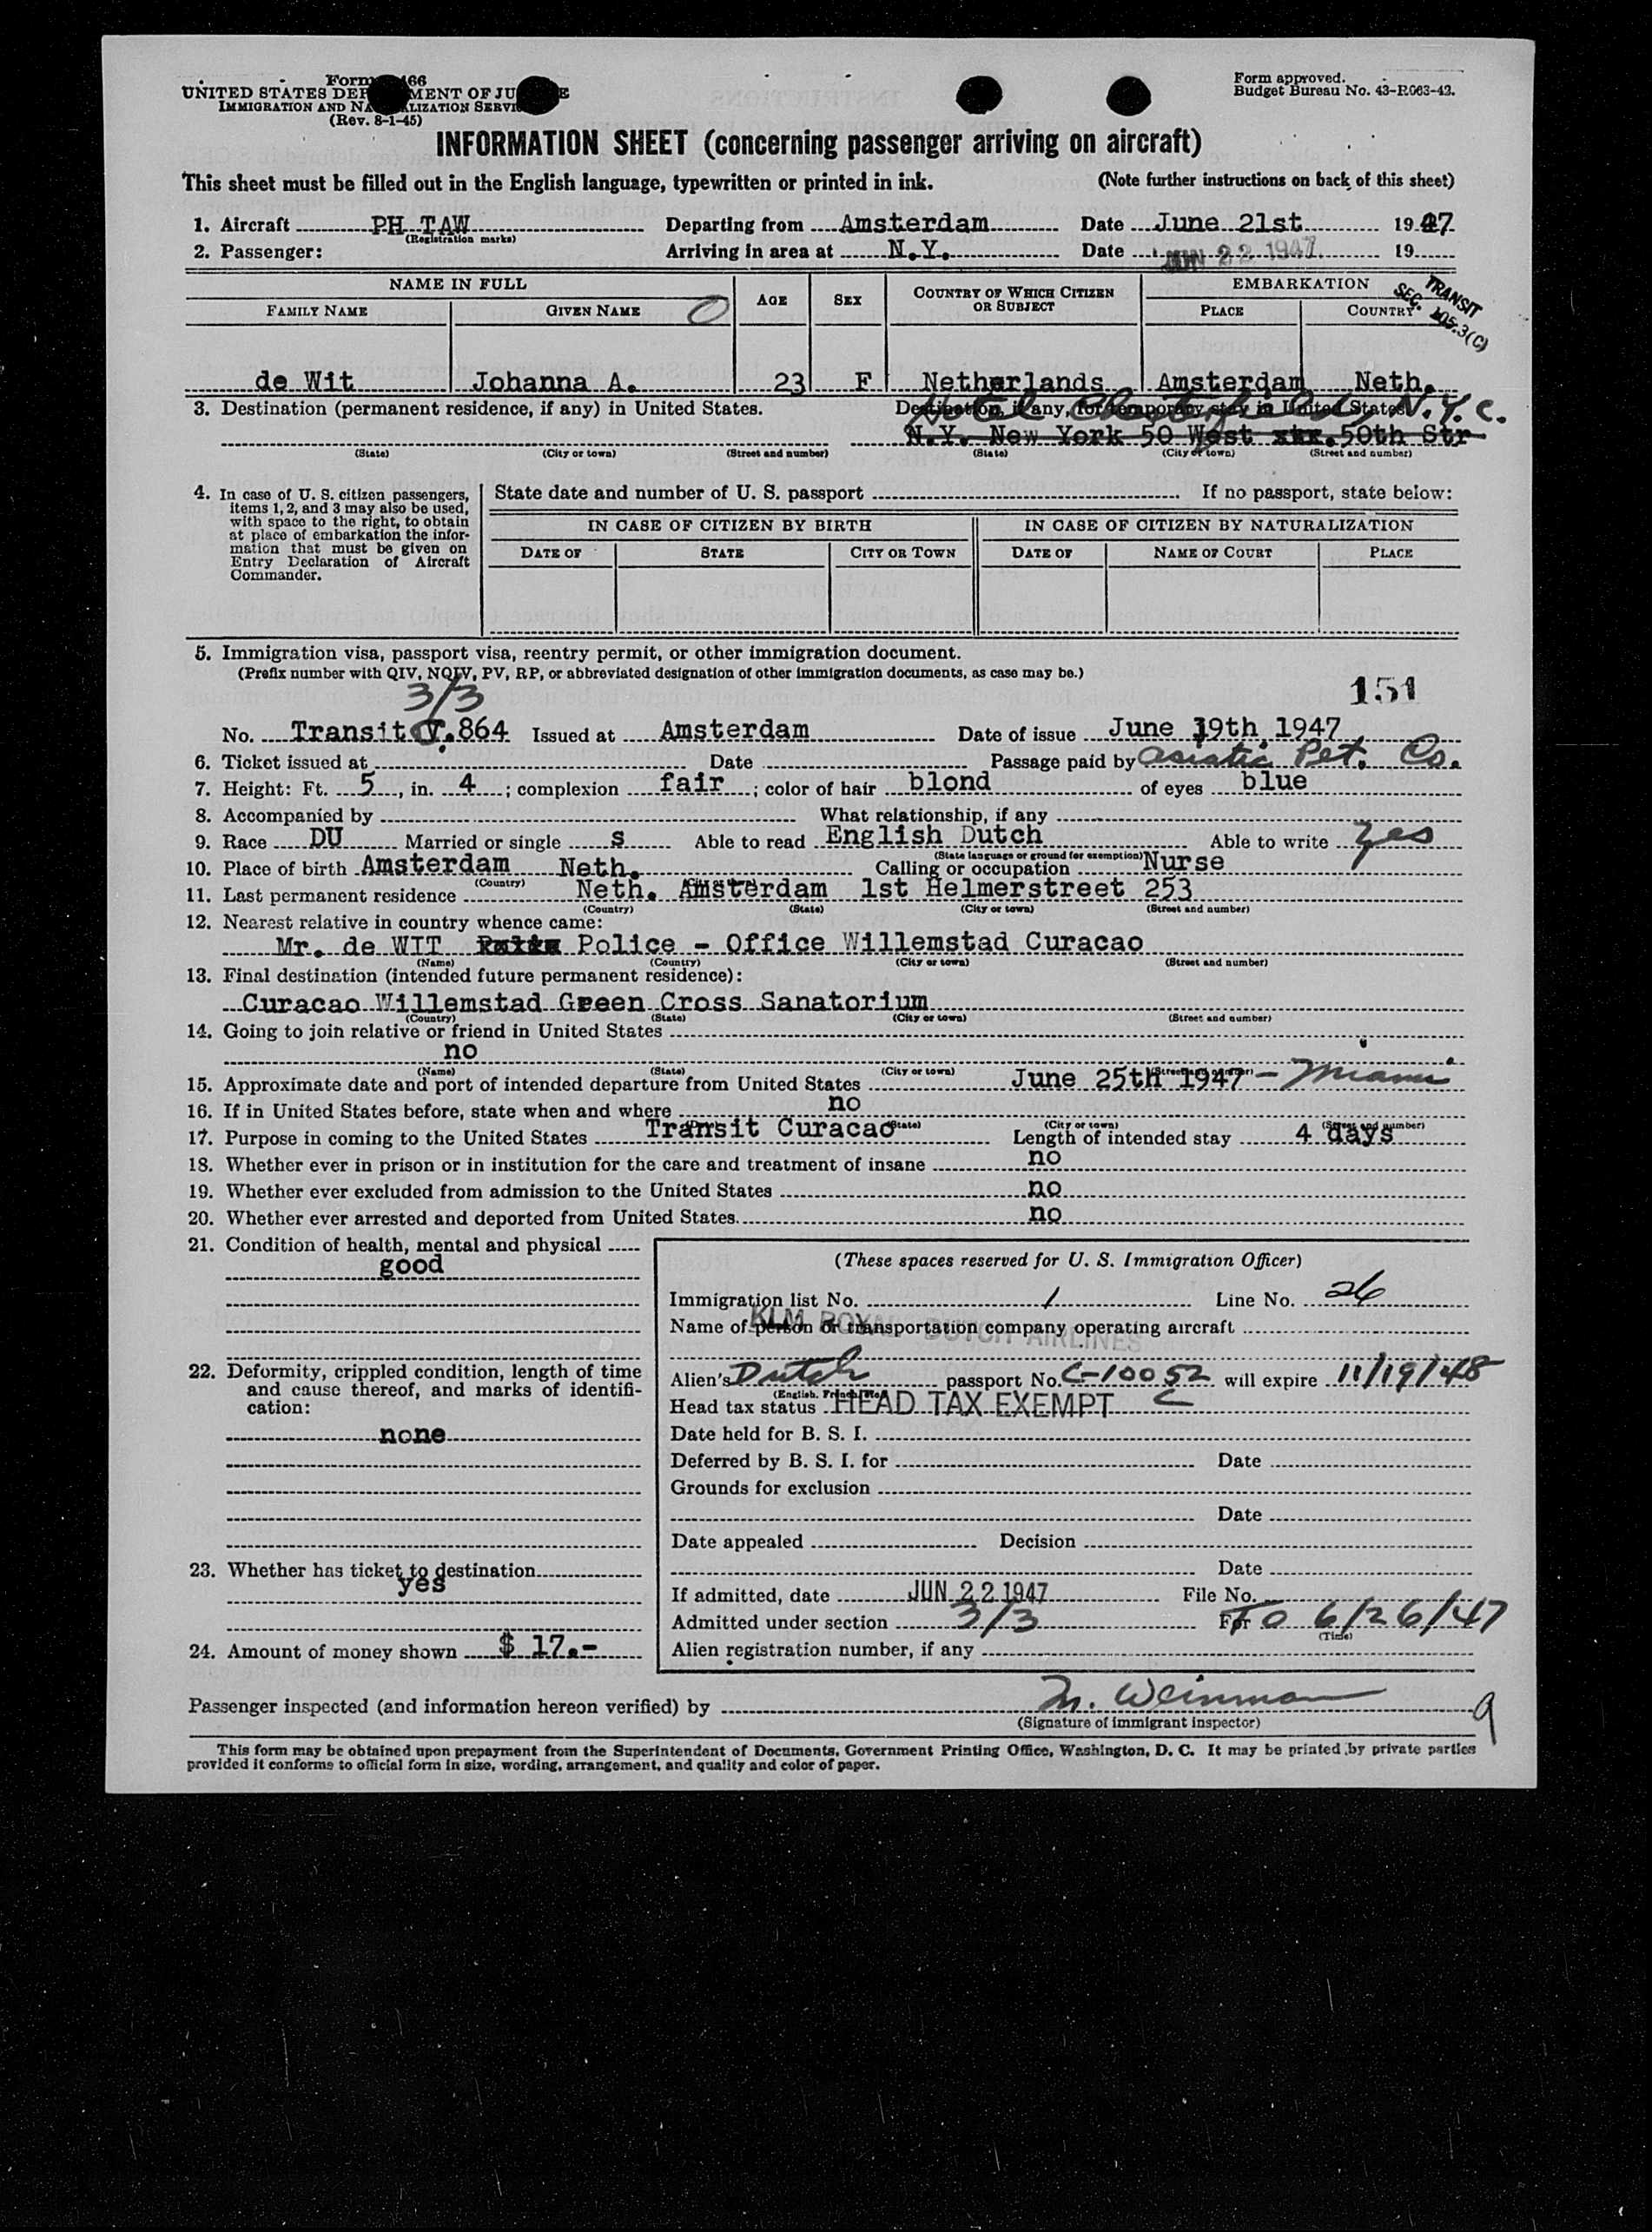 Form 466
UNITED STATES DEPARTMENT OF JUSTICE
IMMIGRATION AND NATURALIZATION SERVICE
(Rev. 8-1-45)
Form approved.
Budget Bureau No. 43-R063-42.
INFORMATION SHEET (concerning passenger arriving on aircraft)
This sheet must be filled out in the English language, typewritten or printed in ink. (Note further instructions on back of this sheet)
1. Aircraft PH TAW Departing from Amsterdam Date June 21st 1947
(Registration marks)
2. Passenger: Arriving in area at N.Y. Date JUN 22 1947 19
NAME IN FULL AGE SEX COUNTRY OF WHICH CITIZEN OR SUBJECT EMBARKATION
FAMILY NAME GIVEN NAME PLACE COUNTRY
TRANSIT
SEC. 105.3(C)
de Wit Johanna A. 23 F Netherlands Amsterdam Neth.
3. Destination (permanent residence, if any) in United States. Destination, if any, for temporary stay in United States
Hotel Chesterfield, N.Y.C.
N.Y. New York 50 West 50th Str
(State) (City or town) (Street and number) (State) (City or town) (Street and number)
4. In case of U. S. citizen passengers, items 1, 2, and 3 may also be used, with space to the right, to obtain at place of embarkation the information that must be given on Entry Declaration of Aircraft Commander.
State date and number of U. S. passport If no passport, state below:
IN CASE OF CITIZEN BY BIRTH IN CASE OF CITIZEN BY NATURALIZATION
DATE OF STATE CITY OR TOWN DATE OF NAME OF COURT PLACE
5. Immigration visa, passport visa, reentry permit, or other immigration document.
(Prefix number with QIV, NQIV, PV, RP, or abbreviated designation of other immigration documents, as case may be.)
3/3
151
No. Transit V.864 Issued at Amsterdam Date of issue June 19th 1947
6. Ticket issued at Date Passage paid by Asiatic Pet. Co.
7. Height: Ft. 5, in. 4; complexion fair; color of hair blond of eyes blue
8. Accompanied by What relationship, if any
9. Race DU Married or single s Able to read English Dutch Able to write Yes
(State language or ground for exemption)
10. Place of birth Amsterdam Neth. Calling or occupation Nurse
(Country)
11. Last permanent residence Neth. Amsterdam 1st Helmerstreet 253
(Country) (State) (City or town) (Street and number)
12. Nearest relative in country whence came:
Mr. de WIT Police - Office Willemstad Curacao
(Name) (Country) (City or town) (Street and number)
13. Final destination (intended future permanent residence):
Curacao Willemstad Green Cross Sanatorium
(Country) (State) (City or town) (Street and number)
14. Going to join relative or friend in United States
no
(Name) (State) (City or town) (Street and number)
15. Approximate date and port of intended departure from United States June 25th 1947 - Miami
16. If in United States before, state when and where no
(State) (City or town) (Street and number)
17. Purpose in coming to the United States Transit Curacao Length of intended stay 4 days
18. Whether ever in prison or in institution for the care and treatment of insane no
19. Whether ever excluded from admission to the United States no
20. Whether ever arrested and deported from United States. no
21. Condition of health, mental and physical
good
22. Deformity, crippled condition, length of time and cause thereof, and marks of identification:
none
23. Whether has ticket to destination
yes
24. Amount of money shown $ 17.-
(These spaces reserved for U. S. Immigration Officer)
Immigration list No. 1 Line No. 26
Name of person or transportation company operating aircraft
KLM ROYAL DUTCH AIRLINES
Alien's Dutch passport No. C-10052 will expire 11/19/48
(English, French, etc.)
Head tax status HEAD TAX EXEMPT C
Date held for B. S. I.
Deferred by B. S. I. for Date
Grounds for exclusion
Date
Date appealed Decision
Date
If admitted, date JUN 22 1947 File No.
Admitted under section 3/3 For TO 6/26/47
(Time)
Alien registration number, if any
Passenger inspected (and information hereon verified) by M. Weinman
(Signature of immigrant inspector)
9
This form may be obtained upon prepayment from the Superintendent of Documents, Government Printing Office, Washington, D. C. It may be printed by private parties
provided it conforms to official form in size, wording, arrangement, and quality and color of paper.